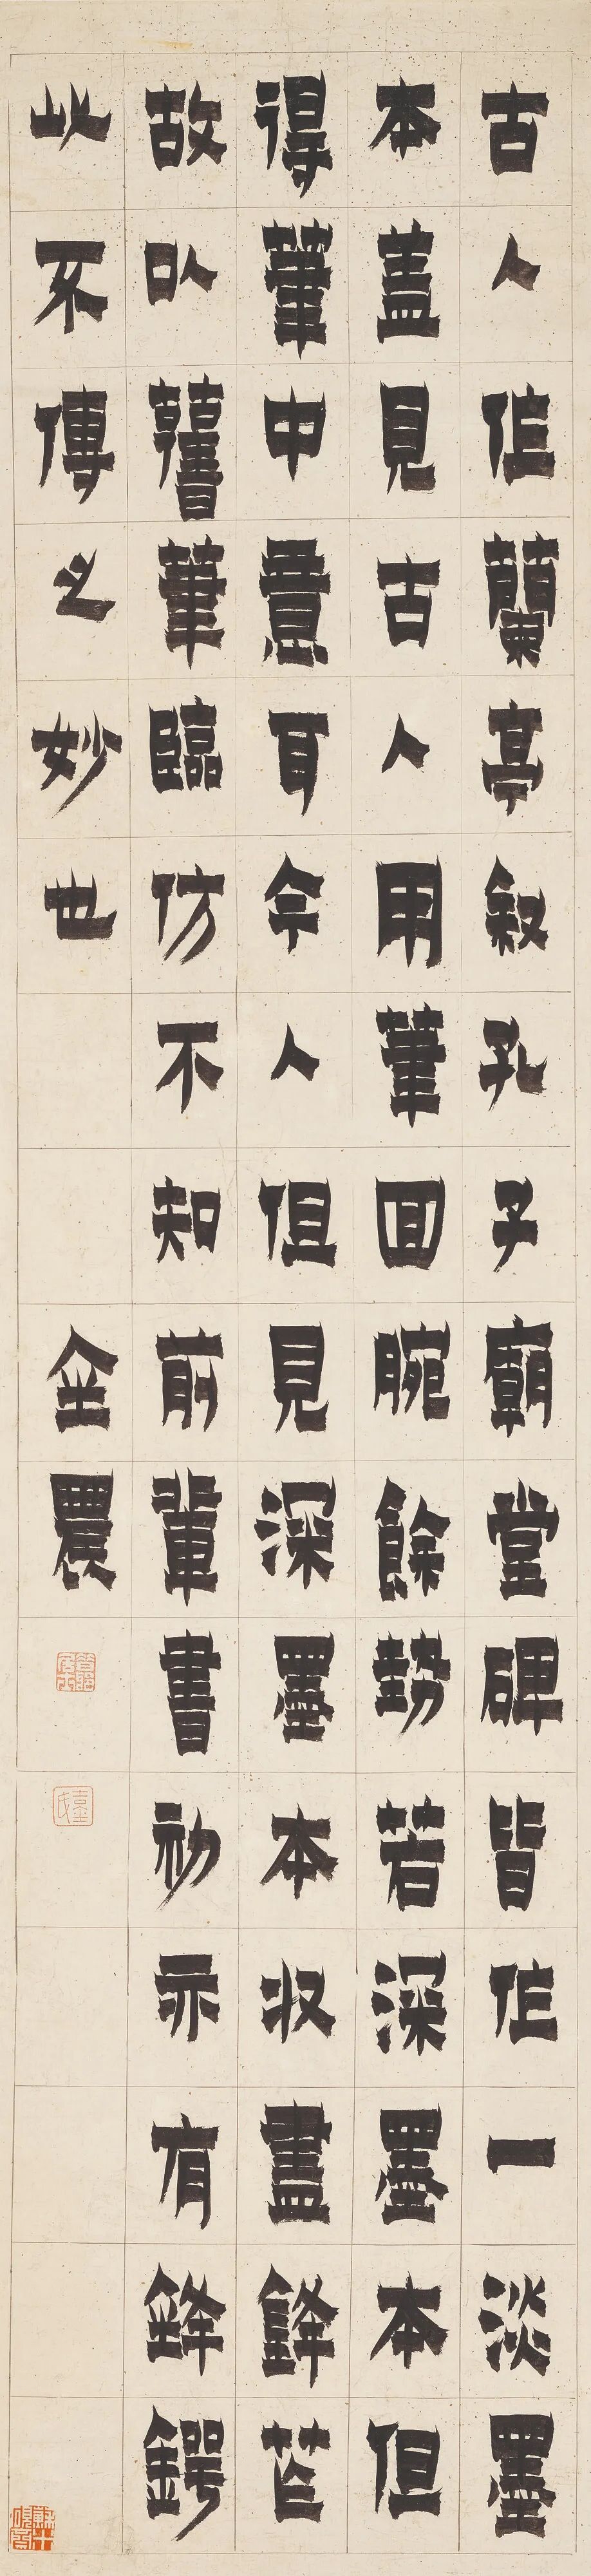 古人作蘭亭敘孔子廟堂碑皆作一淡墨
本蓋見古人用筆回腕餘勢若深墨本但
得筆中意耳今人但見深墨本收盡鋒芒
故以舊筆臨仿不知前輩書初亦有鋒鍔
此不傳之妙也
金農
金吉